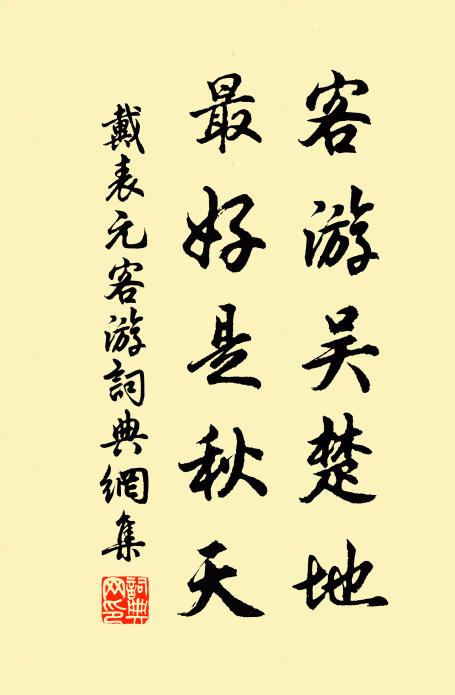 客游吴楚地
最好是秋天
戴表元客游詞典網集
詞典網印